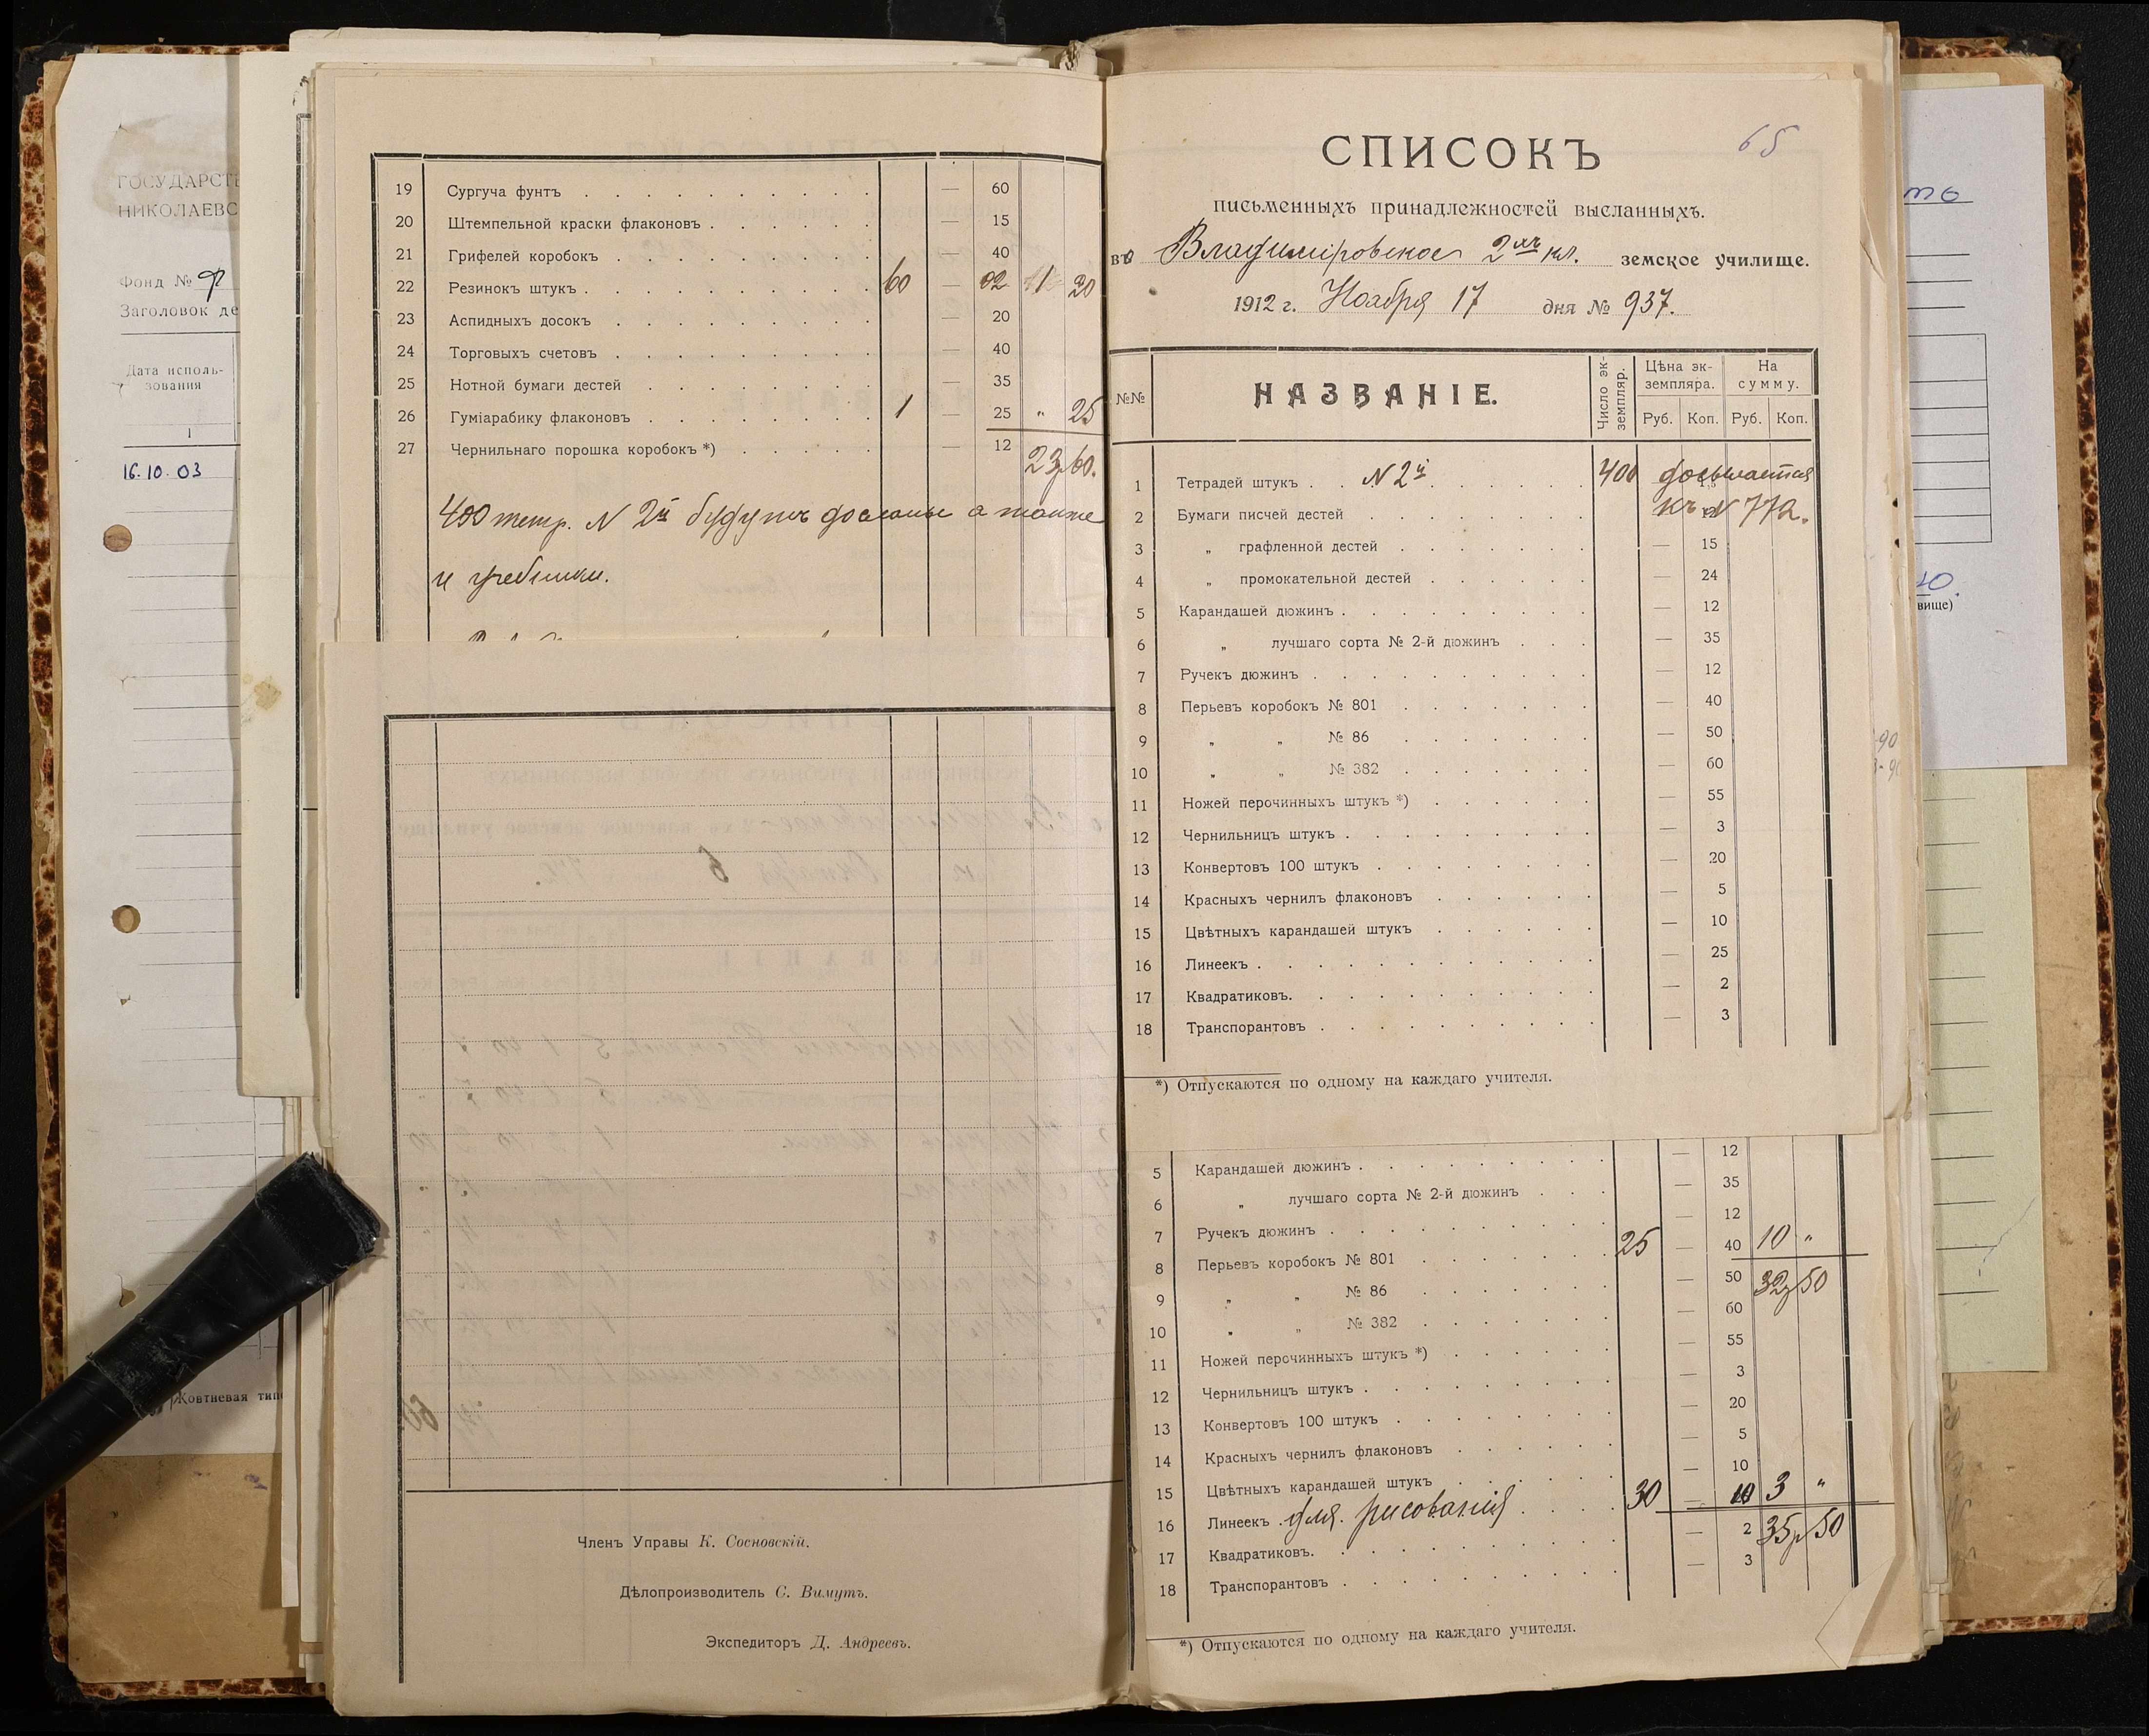 ГОСУДАРСТ
НИКОЛАЕВС
Фонд №
Заголовок де
Дата исполь-
зования
1
16.10.03
Жовтневая тип
19 Сургуча фунтъ — 60
20 Штемпельной краски флаконовъ — 15
21 Грифелей коробокъ — 40
22 Резинокъ штукъ 60 — 02 1 20
23 Аспидныхъ досокъ — 20
24 Торговыхъ счетовъ — 40
25 Нотной бумаги дестей — 35
26 Гуміарабику флаконовъ 1 — 25 " 25
27 Чернильнаго порошка коробокъ *) — 12
23р60.
400 тетр. N 2й будутъ досланы а также
и учебники.
Членъ Управы К. Сосновскій.
Дѣлопроизводитель С. Вимутъ.
Экспедиторъ Д. Андреевъ.
65
СПИСОКЪ
письменныхъ принадлежностей высланныхъ.
во Владиміровское 2хъ кл. земское училище.
1912 г. Ноября 17 дня № 937.
№№ НАЗВАНІЕ. Число эк-земпляр. Цѣна эк-земпляра. На сумму.
Руб. Коп. Руб. Коп.
1 Тетрадей штукъ N 2й 400 досылается
2 Бумаги писчей дестей къ N 772.
3 „ графленной дестей — 15
4 „ промокательной дестей — 24
5 Карандашей дюжинъ — 12
6 „ лучшаго сорта № 2-й дюжинъ — 35
7 Ручекъ дюжинъ — 12
8 Перьевъ коробокъ № 801 — 40
9 „ „ № 86 — 50
10 „ „ № 382 — 60
11 Ножей перочинныхъ штукъ *) — 55
12 Чернильницъ штукъ — 3
13 Конвертовъ 100 штукъ — 20
14 Красныхъ чернилъ флаконовъ — 5
15 Цвѣтныхъ карандашей штукъ — 10
16 Линеекъ — 25
17 Квадратиковъ. — 2
18 Транспорантовъ — 3
*) Отпускаются по одному на каждаго учителя.
5 Карандашей дюжинъ — 12
6 „ лучшаго сорта № 2-й дюжинъ — 35
7 Ручекъ дюжинъ — 12
8 Перьевъ коробокъ № 801 25 — 40 10 "
9 „ „ № 86 — 50 32р50
10 „ „ № 382 — 60
11 Ножей перочинныхъ штукъ *) — 55
12 Чернильницъ штукъ — 3
13 Конвертовъ 100 штукъ — 20
14 Красныхъ чернилъ флаконовъ — 5
15 Цвѣтныхъ карандашей штукъ — 10
16 Линеекъ для рисованія 30 — 10 3 "
17 Квадратиковъ. — 2 35р50
18 Транспорантовъ — 3
*) Отпускаются по одному на каждаго учителя.
вище)